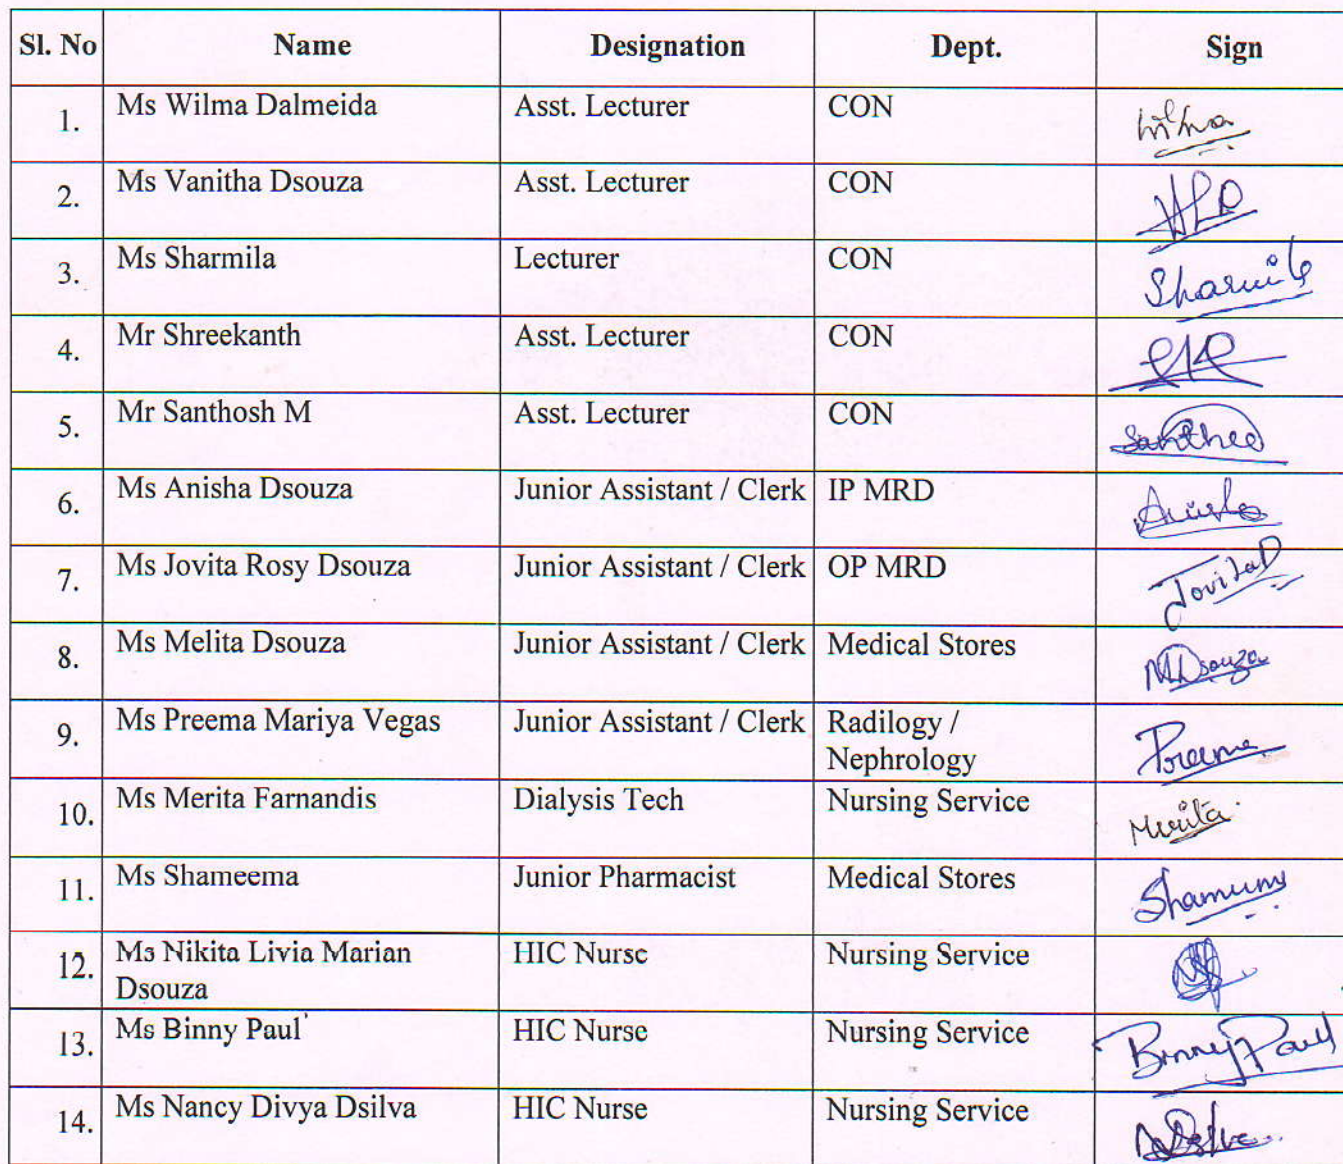 Sl. No Name Designation Dept. Sign
1. Ms Wilma Dalmeida Asst. Lecturer CON Wilma
2. Ms Vanitha Dsouza Asst. Lecturer CON
3. Ms Sharmila Lecturer CON Sharmila
4. Mr Shreekanth Asst. Lecturer CON
5. Mr Santhosh M Asst. Lecturer CON
6. Ms Anisha Dsouza Junior Assistant / Clerk IP MRD Anisha
7. Ms Jovita Rosy Dsouza Junior Assistant / Clerk OP MRD Jovita D
8. Ms Melita Dsouza Junior Assistant / Clerk Medical Stores MDsouza
9. Ms Preema Mariya Vegas Junior Assistant / Clerk Radilogy /
Nephrology Preema
10. Ms Merita Farnandis Dialysis Tech Nursing Service Merita
11. Ms Shameema Junior Pharmacist Medical Stores
12. Ms Nikita Livia Marian HIC Nurse Nursing Service
Dsouza
13. Ms Binny Paul HIC Nurse Nursing Service Binny Paul
14. Ms Nancy Divya Dsilva HIC Nurse Nursing Service